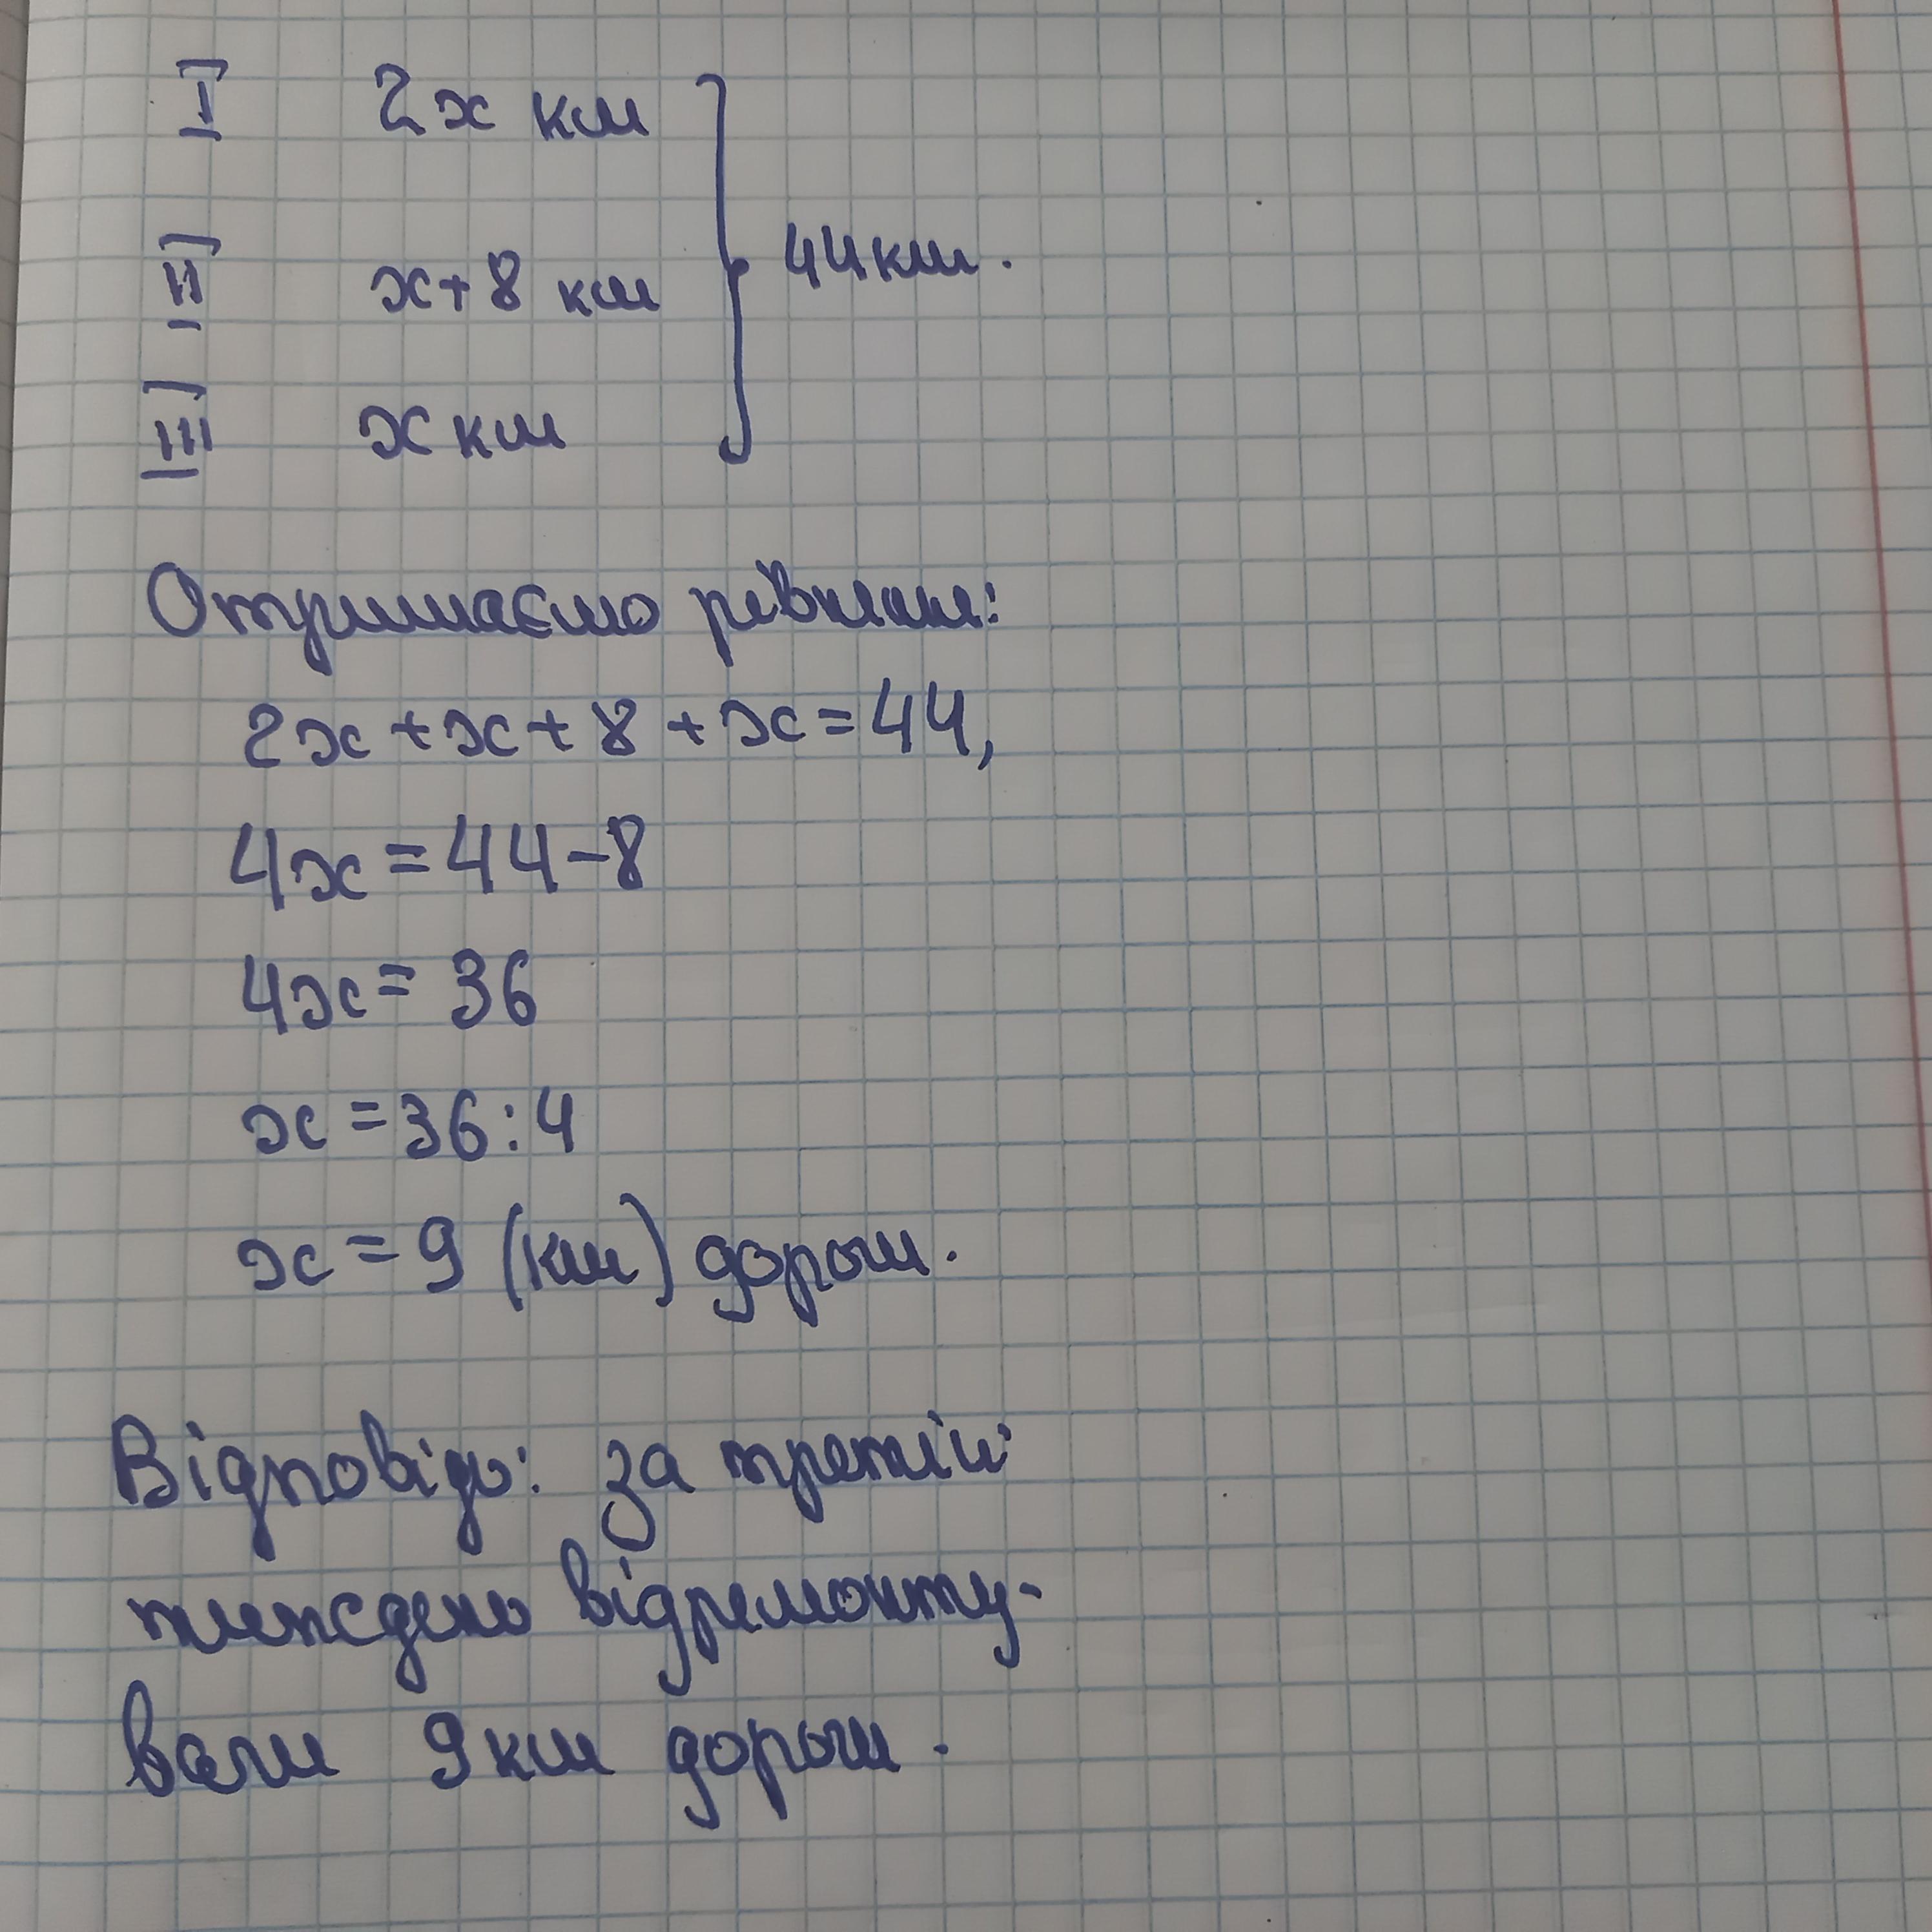 I 2x км
II x+8 км
44км.
III x км
Отримаємо рівняня:
2x+x+8+x=44,
4x=44-8
4x= 36
x=36:4
x=9 (км) дороги.
Відповідь: за третій
тиждень відремонту-
вали 9км дороги.